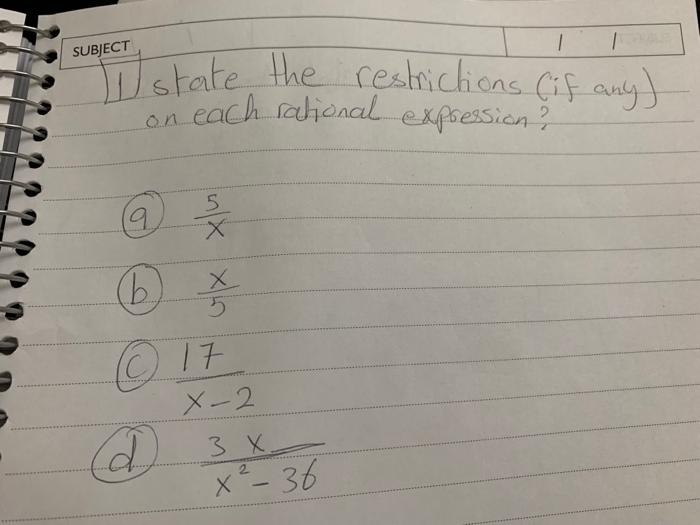 SUBJECT / /
1 state the restrictions (if any)
on each rational expression?
a 5/x
b x/5
c 17/x-2
d 3x/x²-36